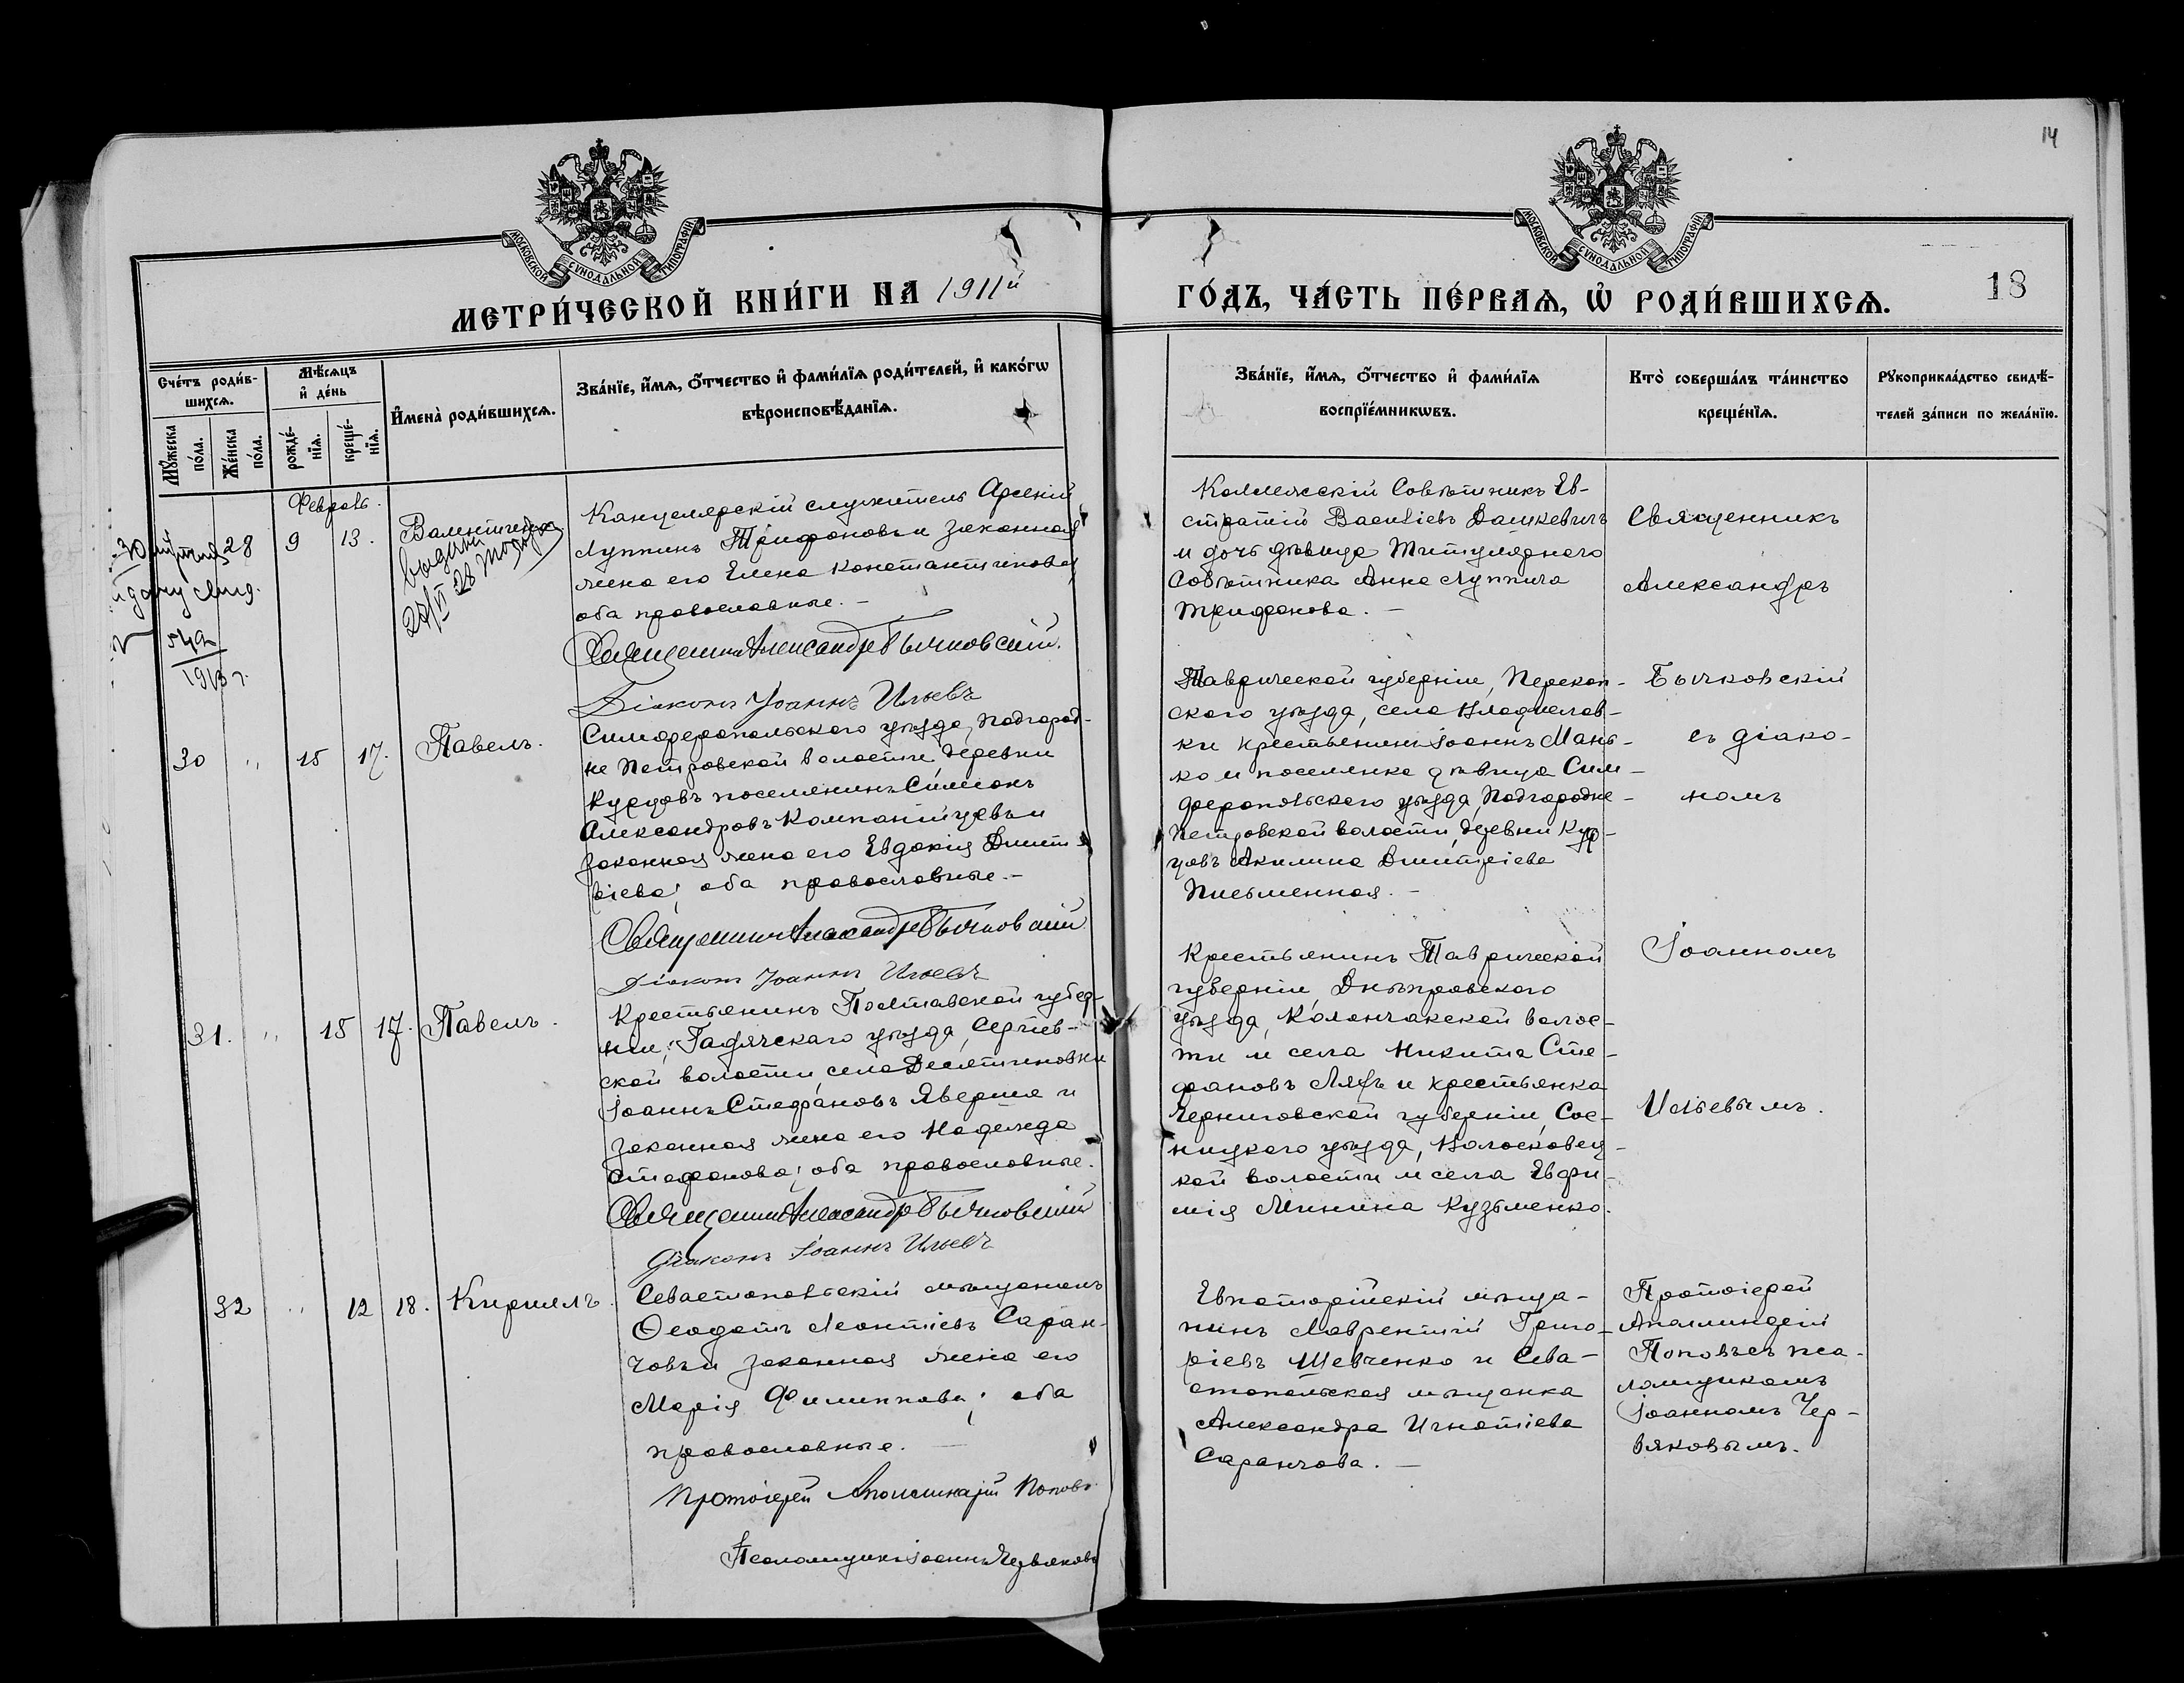 14
МОСКОВСКОЙ СѴНОДАЛЬНОЙ ТИПОГРАФІИ
МОСКОВСКОЙ СѴНОДАЛЬНОЙ ТИПОГРАФІИ
МЕТРИ́ЧЕСКОЙ КНИ́ГИ НА 1911й
ГО́ДЪ, ЧА́СТЬ ПЕ́РВАѦ, Ѡ҆ РОДИ́ВШИХСѦ.
18
Сче́тъ роди́в-
шихсѧ.
Мꙋ́жеска по́ла.
Же́нска по́ла.
Мѣ́сѧцъ
и҆ де́нь
рожде́-
нїѧ.
креще́-
нїѧ.
И҆мена̀ роди́вшихсѧ.
Зва́нїе, и҆́мѧ, ѻ҆́тчество и҆ фами́лїѧ роди́телей, и҆ како́гѡ
вѣроисповѣ́данїѧ.
Зва́нїе, и҆́мѧ, ѻ҆́тчество и҆ фами́лїѧ
воспрїе́мникѡвъ.
Кто̀ соверша́лъ та́инство
креще́нїѧ.
Рꙋкоприкла́дство свидѣ́-
телей за́писи по жела́нїю.
Февраль.
28
9
13.
Валентина
выдана
28 года
Канцелярскій служитель Арсеній
Луппинъ Трифоновъ и законная
жена его Елена Константинова,
оба православные. -
Священникъ Александръ Бычковскій.
Діаконъ Іоаннъ Ильевъ
Коллежскій Совѣтникъ Ев-
стратій Васильевъ Дашкевичъ
и дочь дѣвица Титулярнаго
Совѣтника Анна Луппина
Трифонова. -
Священникъ
Александръ
Бычковскій
съ діако-
номъ
Іоанномъ
Ильевымъ.
1913 г.
30
"
15
17.
Павелъ.
Симферопольскаго уѣзда, Подгород-
не Петровской волости деревни
Курцовъ поселянинъ Симеонъ
Александровъ Компанійцевъ и
законная жена его Евдокія Димит-
ріева; оба православные. -
Священникъ Александръ Бычковскій
Діаконъ Іоаннъ Ильевъ
Таврической губерніи, Перекоп-
скаго уѣзда, села Владислав-
ки крестьянинъ Іоаннъ Мань-
ко и поселянка дѣвица Сим-
феропольскаго уѣзда, Подгородне-
Петровской волости, деревни Кур-
цовъ Акилина Димитріева
Письменная. -
31.
"
15
17.
Павелъ.
Крестьянинъ Полтавской губер-
ніи, Гадячскаго уѣзда, Сергіев-
ской волости, села Десятиновки
Іоаннъ Стефановъ Яверша и
законная жена его Надежда
Стефанова; оба православные.
Священникъ Александръ Бычковскій
Діаконъ Іоаннъ Ильевъ
Крестьянинъ Таврической
губерніи, Днѣпровскаго
уѣзда, Каланчакской волос-
ти и села Никита Сте-
фановъ Ляхъ и крестьянка
Черниговской губерніи, Сос-
ницкаго уѣзда, Волосковец-
кой волости и села Евфи-
мія Минина Кузьменко.
32
"
12
18.
Кириллъ.
Севастопольскій мѣщанинъ
Ѳеодотъ Леонтіевъ Саран-
човъ и законная жена его
Марія Филиппова; оба
православные. -
Протоіерей Аполлинарій Поповъ
Псаломщикъ Іоаннъ Червяковъ
Евпаторійскій мѣща-
нинъ Лаврентій Григо-
ріевъ Шевченко и Сева-
стопольская мѣщанка
Александра Игнатіева
Саранчова. -
Протоіерей
Аполлинарій
Поповъ съ пса-
ломщикомъ
Іоанномъ Чер-
вяковымъ.